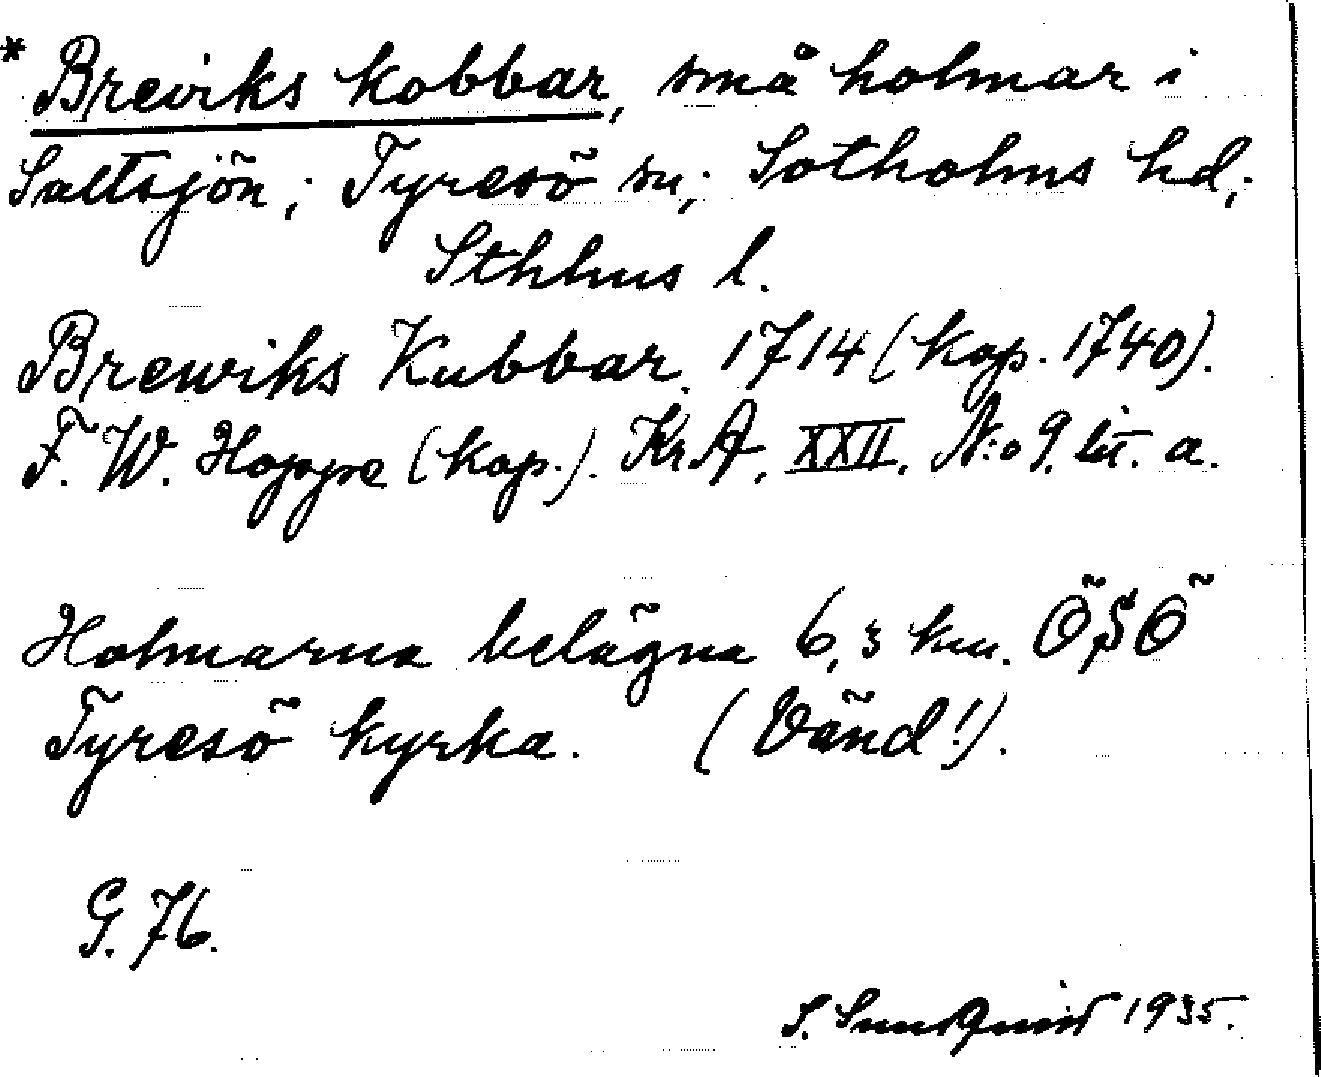 * Breviks kobbar, små holmar i
Saltsjön; Tyresö sn; Sotholms hd;
Sthlms l.
Brewiks Kubbar. 1714 (kop. 1740).
F. W. Hoppe (kop.). Kr.A. XXII. N:o 9. lit. a.
Holmarna belägna 6,3 km. ÖSÖ
Tyresö kyrka. (Vänd!).
G. 76.
S. Sundqvist 1935.